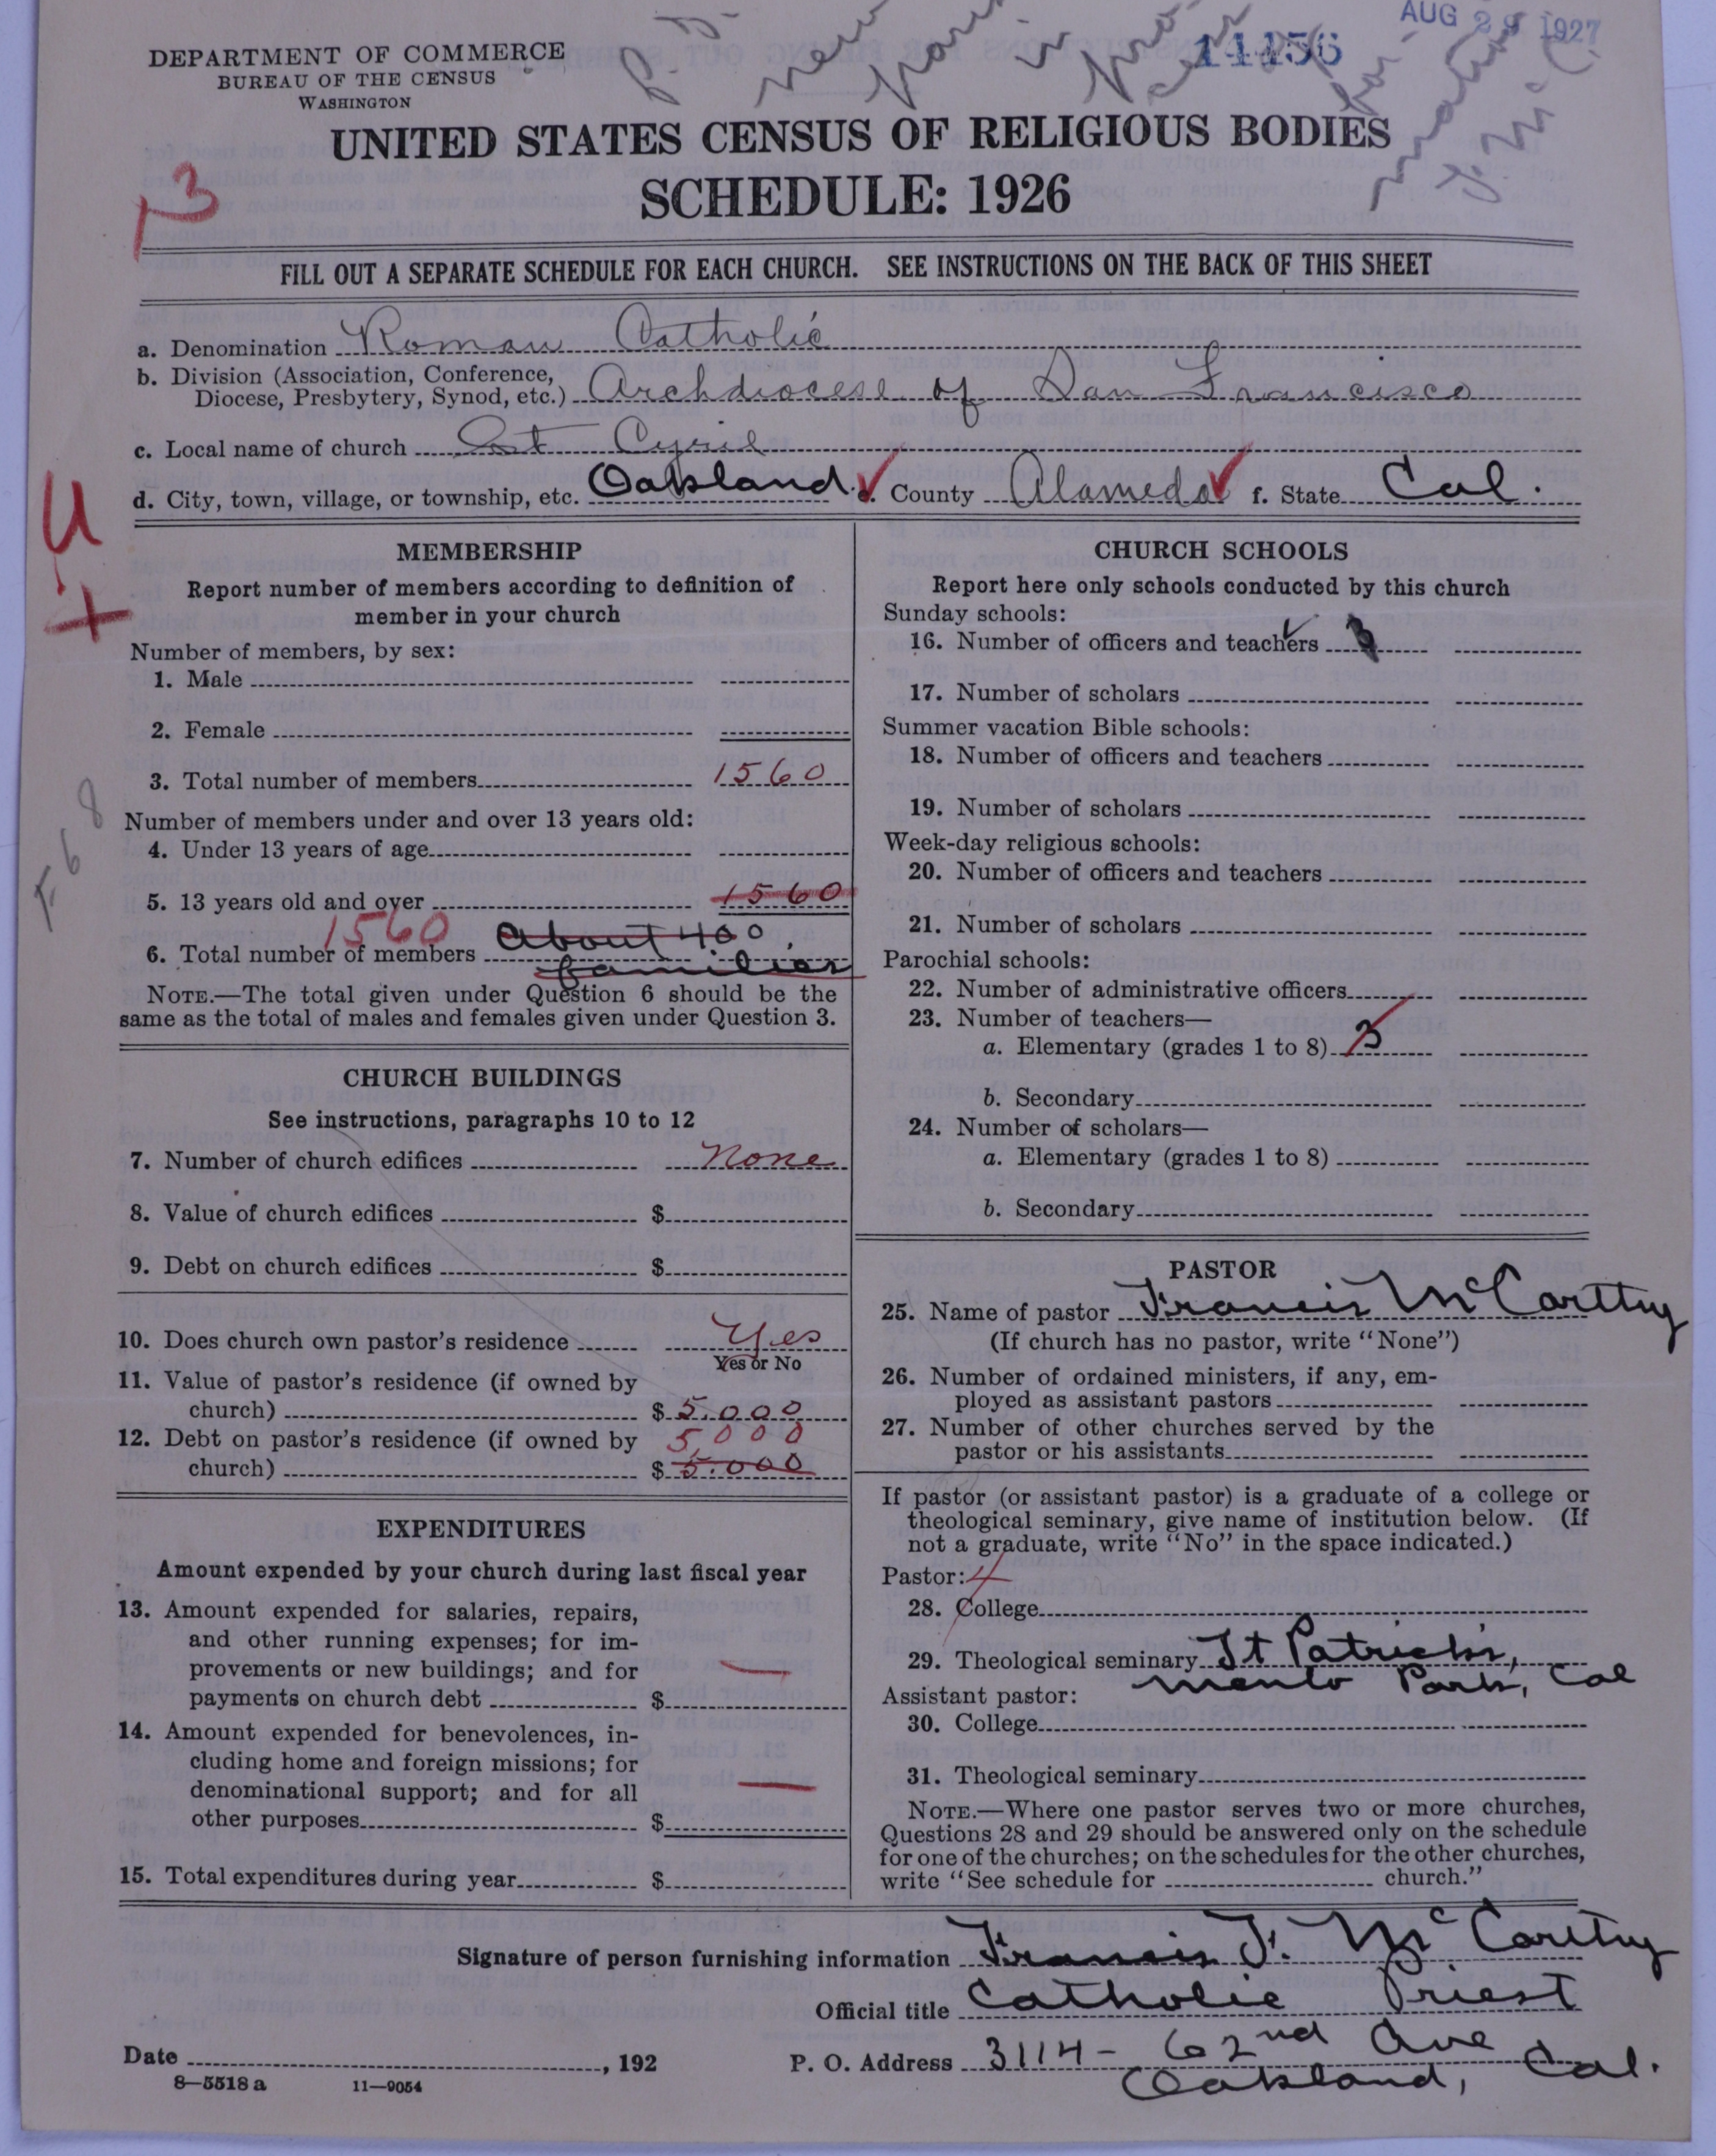 AUG 29 1927
14456
DEPARTMENT OF COMMERCE
BUREAU OF THE CENSUS
WASHINGTON
UNITED STATES CENSUS OF RELIGIOUS BODIES
SCHEDULE: 1926
FILL OUT A SEPARATE SCHEDULE FOR EACH CHURCH. SEE INSTRUCTIONS ON THE BACK OF THIS SHEET
a. Denomination Roman Catholic
b. Division (Association, Conference,
Diocese, Presbytery, Synod, etc.) Archdiocese of San Francisco
c. Local name of church St Cyril
d. City, town, village, or township, etc. Oakland e. County Alameda f. State Cal.
MEMBERSHIP
Report number of members according to definition of
member in your church
Number of members, by sex:
1. Male
2. Female
3. Total number of members 1560
Number of members under and over 13 years old:
4. Under 13 years of age
5. 13 years old and over 1560
1560
6. Total number of members About 400
families
NOTE.—The total given under Question 6 should be the
same as the total of males and females given under Question 3.
CHURCH BUILDINGS
See instructions, paragraphs 10 to 12
7. Number of church edifices None
8. Value of church edifices $
9. Debt on church edifices $
10. Does church own pastor's residence Yes
Yes or No
11. Value of pastor's residence (if owned by
church) $ 5,000
12. Debt on pastor's residence (if owned by 5,000
church) $ 5.000
EXPENDITURES
Amount expended by your church during last fiscal year
13. Amount expended for salaries, repairs,
and other running expenses; for im-
provements or new buildings; and for
payments on church debt $
14. Amount expended for benevolences, in-
cluding home and foreign missions; for
denominational support; and for all
other purposes $
15. Total expenditures during year $
CHURCH SCHOOLS
Report here only schools conducted by this church
Sunday schools:
16. Number of officers and teachers 3
17. Number of scholars
Summer vacation Bible schools:
18. Number of officers and teachers
19. Number of scholars
Week-day religious schools:
20. Number of officers and teachers
21. Number of scholars
Parochial schools:
22. Number of administrative officers
23. Number of teachers—
a. Elementary (grades 1 to 8) 3
b. Secondary
24. Number of scholars—
a. Elementary (grades 1 to 8)
b. Secondary
PASTOR
25. Name of pastor Francis McCarthy
(If church has no pastor, write "None")
26. Number of ordained ministers, if any, em-
ployed as assistant pastors
27. Number of other churches served by the
pastor or his assistants
If pastor (or assistant pastor) is a graduate of a college or
theological seminary, give name of institution below. (If
not a graduate, write "No" in the space indicated.)
Pastor: 4
28. College
29. Theological seminary St Patrick's,
Menlo Park, Cal
Assistant pastor:
30. College
31. Theological seminary
NOTE.—Where one pastor serves two or more churches,
Questions 28 and 29 should be answered only on the schedule
for one of the churches; on the schedules for the other churches,
write "See schedule for church."
Signature of person furnishing information Francis J. McCarthy
Official title Catholic Priest
Date , 192 P. O. Address 3114- 62nd Ave
Oakland, Cal.
8—5518 a 11—9054